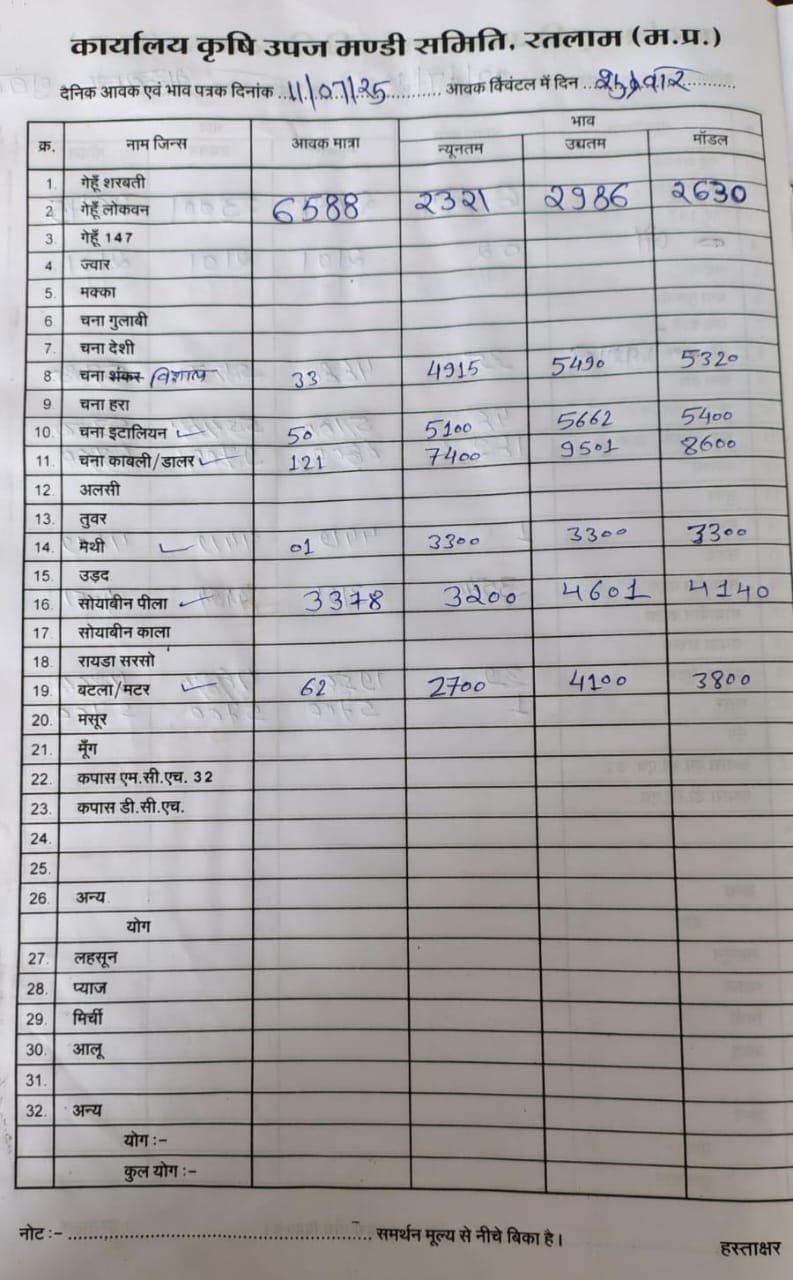 कार्यालय कृषि उपज मण्डी समिति, रतलाम (म.प्र.)
दैनिक आवक एवं भाव पत्रक दिनांक ..11/07/25............ आवक क्विंटल में दिन ..शुक्रवार............
क्र. नाम जिन्स आवक मात्रा भाव
न्यूनतम उच्चतम मॉडल
1. गेहूँ शरबती
2. गेहूँ लोकवन 6588 2321 2986 2630
3. गेहूँ 147
4. ज्वार
5. मक्का
6. चना गुलाबी
7. चना देशी
8. चना शंकर विशाल 33 4915 5490 5320
9. चना हरा
10. चना इटालियन ✓ 50 5100 5662 5400
11. चना काबली/डालर ✓ 121 7400 9501 8600
12. अलसी
13. तुवर
14. मैथी ✓ 01 3300 3300 3300
15. उड़द
16. सोयाबीन पीला ✓ 3378 3200 4601 4140
17. सोयाबीन काला
18. रायडा सरसो
19. बटला/मटर ✓ 62 2700 4100 3800
20. मसूर
21. मूँग
22. कपास एम.सी.एच. 32
23. कपास डी.सी.एच.
24.
25.
26. अन्य
योग
27. लहसून
28. प्याज
29. मिर्ची
30. आलू
31.
32. अन्य
योग :-
कुल योग :-
नोट :- ............................................................ समर्थन मूल्य से नीचे बिका है।
हस्ताक्षर